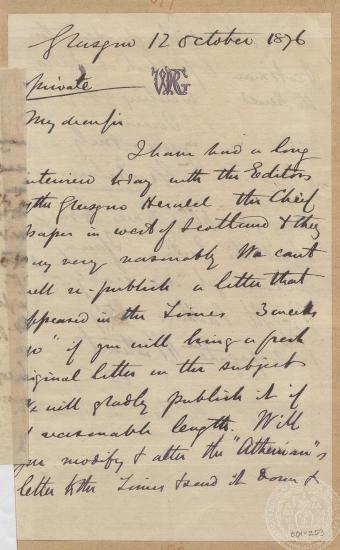 Glasgow 12 October 1876
private
WRG
My dear sir
I have had a long
nterview today with the Editors
the Glasgow Herald the Chief
paper in west of Scotland & they
very reasonably We cant
ell re-publish a letter that
ppeared in the Times 3 weeks
go" if you will bring a fresh
riginal letter on the subject
we will gladly publish it if
reasonable length. Will
you modify & alter the "Athenian"s
letter to the Times & send it down &
001-253